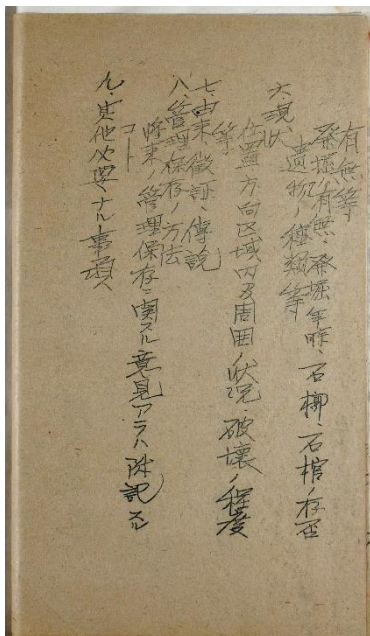 有無等
発堀ノ有無、発堀年時、石槨、石棺ノ存否
遺物ノ種類等
六、現状
位置、方向区域内及周囲ノ状況、破壊ノ程度
等
七、由来、徴証、傳説
八、管理保存ノ方法
将来ノ管理保存ニ関スル意見アラハ附記スル
コト
九、其他必要ナル事項